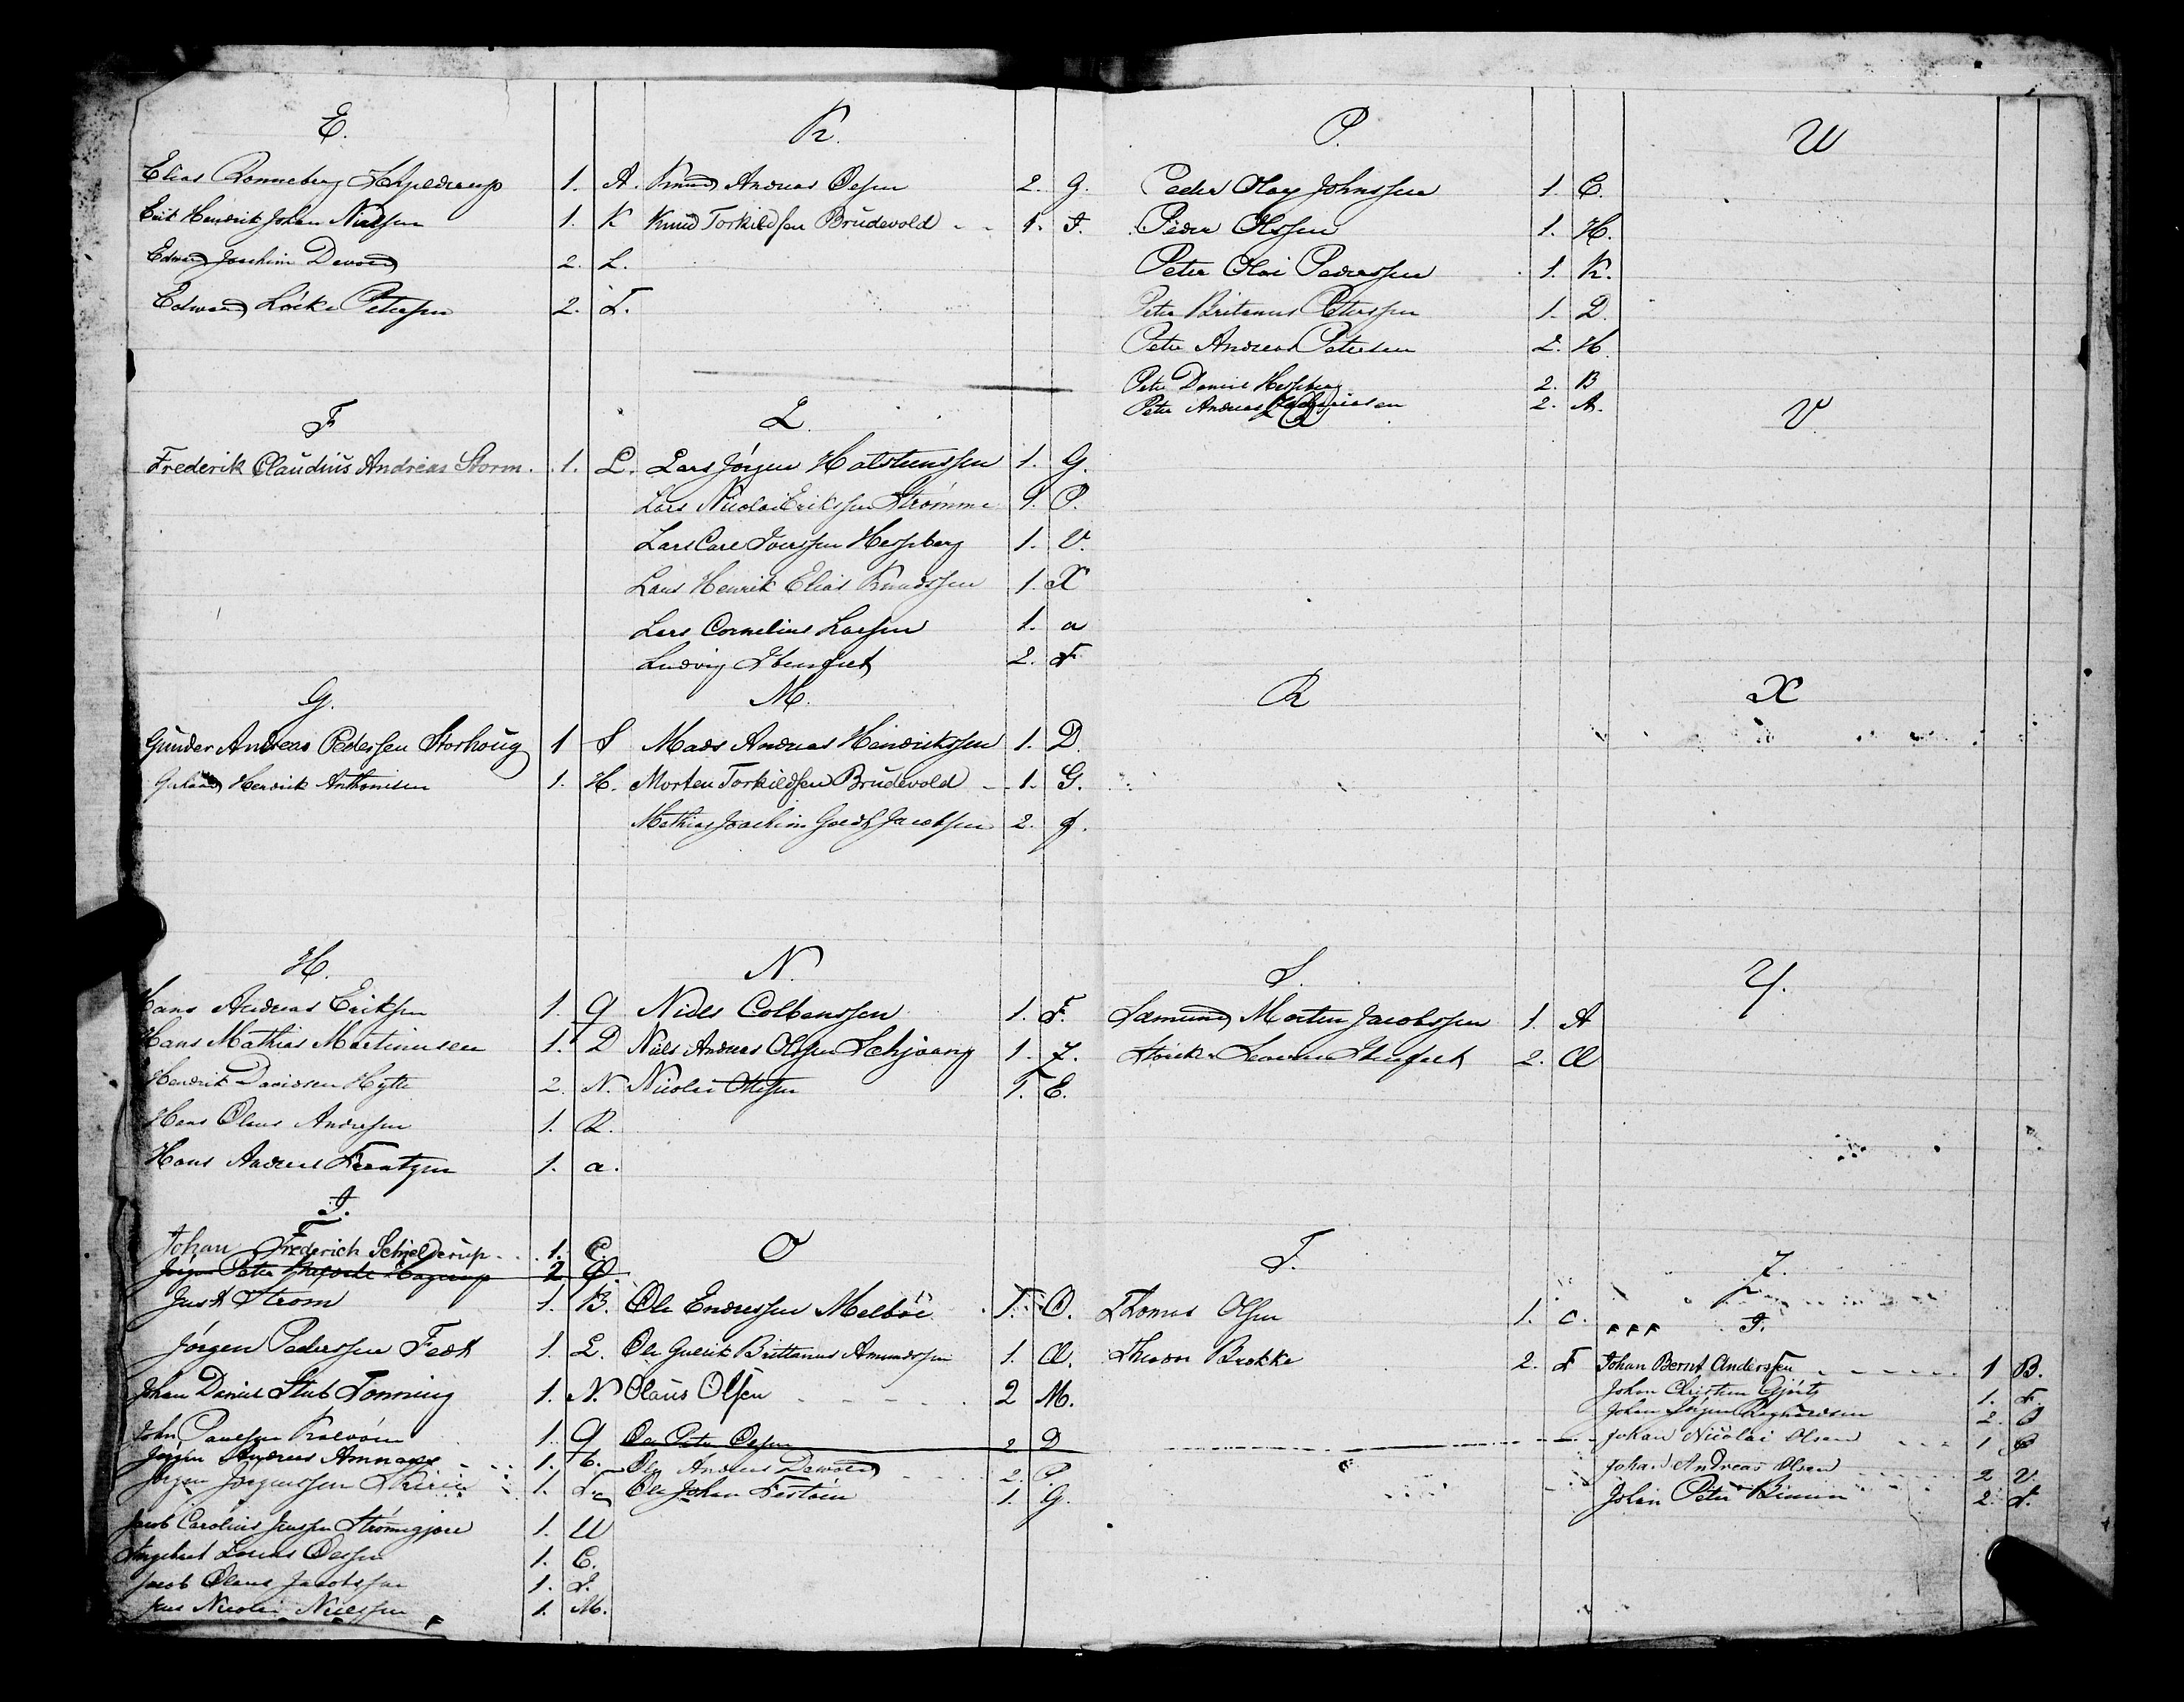 E.
Elias Ronneberg Schjelderup 1. A.
Erik Hendrik Johan Nielsen 1. K
Edward Joachim Dewold 2. L.
Edward Löcke Petersen 2. T.
F
Frederik Claudius Andreas Storm. 1. L.
G.
Gunder Andreas Pedersen Storhoug 1 S
Hendrik Anthonisen 1. H.
H.
Hans Andreas Eriksen 1. Q
Hans Mathias Martinusen 1. D
Hendrik Davidsen Hytte 2. N.
Hans Olaus Andresen 1. R.
Hans Andreas Frantzen 1. a.
I.
Johan Frederich Schjelderup 1. C.
Jörgen Peter Hagerup 2
Just Strom 1. B.
Jörgen Pederssen Fedt 1. L.
Johan Daniel Stub Tonning 1. N.
John Paulsen 1. Q
Jörgen Andreas 1.
Jörgen Jörgenssen 1.
Jacob Carolius Jenssen Strömegjære 1. U
Louis 1. C.
Jacob Olaus Jacobssen 1. I.
Jens Nicolai Nielssen 1. M.
K.
Knud Andreas Oesen 2. G.
Knud Torkildsen Brudevold 1. I.
L.
Lars Jörgen Halstenssen 1. G.
Lars Nicolai Erikssen Strömme 1. P.
Lars Carl Iverssen Hessberg 1. V.
Lars Henrik Elias Knudssen 1. X
Lars Cornelius Larsen 1. a
Ludvig 2. F
M.
Mads Andreas Hendrikssen 1. D.
Morten Torkildsen Brudevold 1. G.
Mathias Joachim Jacobsen 2. g.
N.
Niels Colbenssen 1. F.
Niels Andreas Olssen Schjaang 1. Z.
Nicolai 1. E.
O
Ole Endressen Melböe 1. O.
Ole Brittanus Amundssen 1. Q.
Olaus Olsen 2 M.
Ole Peter Oesen 2 D
Ole Andreas Dewold 2. P
Ole Johan 1. G.
P.
Peder Olay Johnssen 1. C.
Peder Olssen 1. H.
Peter Olai Pederssen 1. K.
Peter Britanus Peterssen 1. D.
Peter Andreas Petersen 2. H.
Peter Daniel Hessberg 2. B
Peter Andreas Zachariasen 2. A.
R
S.
Sæmund Morten Jacobssen 1. A
2. Q
T.
Thomas Olsen 1. c.
Brekke 2. F
U
V
X
Y.
Z.
I.
Johan Bernt Anderssen 1 B.
Johan Christian Gjörtz 1. F.
Johan Jörgen 2.
Johan Nicolai Olsen 1
Johan Andreas Olsen 2 V.
Johan Peter 2.